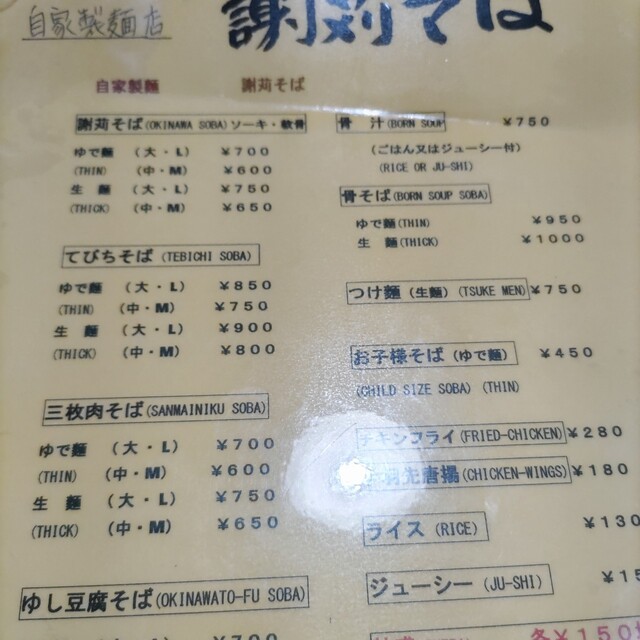 自家製麺店
謝苅そば
自家製麺 謝苅そば
謝苅そば(OKINAWA SOBA)ソーキ・軟骨
ゆで麺 (大・L) ¥700
(THIN) (中・M) ¥600
生 麺 (大・L) ¥750
(THICK) (中・M) ¥650
てびちそば (TEBICHI SOBA)
ゆで麺 (大・L) ¥850
(THIN) (中・M) ¥750
生 麺 (大・L) ¥900
(THICK) (中・M) ¥800
三枚肉そば(SANMAINIKU SOBA)
ゆで麺 (大・L) ¥700
(THIN) (中・M) ¥600
生 麺 (大・L) ¥750
(THICK) (中・M) ¥650
ゆし豆腐そば(OKINAWATO-FU SOBA)
¥700
骨 汁(BORN SOUP) ¥750
(ごはん又はジューシー付)
(RICE OR JU-SHI)
骨そば(BORN SOUP SOBA)
ゆで麺(THIN) ¥950
生 麺(THICK) ¥1000
つけ麺 (生麺) (TSUKE MEN) ¥750
お子様そば (ゆで麺) ¥450
(CHILD SIZE SOBA) (THIN)
チキンフライ(FRIED-CHICKEN) ¥280
手羽先唐揚(CHICKEN-WINGS) ¥180
ライス (RICE) ¥130
ジューシー (JU-SHI) ¥15
各¥150